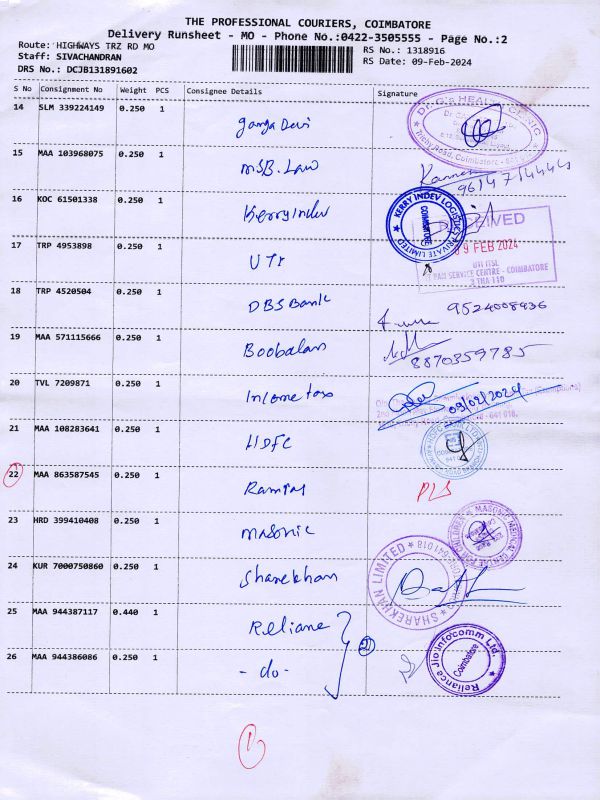 THE PROFESSIONAL COURIERS, COIMBATORE
Delivery Runsheet - MO - Phone No.:0422-3505555 - Page No.:2
Route: HIGHWAYS TRZ RD MO
RS No.: 1318916
Staff: SIVACHANDRAN
RS Date: 09-Feb-2024
DRS No.: DCJB131891602
S No Consignment No Weight PCS Consignee Details Signature
14 SLM 339224149 0.250 1 Ganga Devi
Dr. G's HEALTH CLINIC
Trichy Road, Coimbatore
15 MAA 103968075 0.250 1 MSB. Law
16 KOC 61501338 0.250 1 Kerry Indev
KERRY INDEV LOGISTICS PRIVATE LIMITED
COIMBATORE
RECEIVED
17 TRP 4953898 0.250 1 UTI
09 FEB 2024
UTI ITSL
PAN SERVICE CENTRE - COIMBATORE
18 TRP 4520504 0.250 1 DBS Bank
9524008936
19 MAA 571115666 0.250 1 Boobalan
8870359785
20 TVL 7209871 0.250 1 Income tax
09/02/2024
21 MAA 108283641 0.250 1 HDFC
22 MAA 863587545 0.250 1
23 HRD 399410408 0.250 1 Masonic
MASONIC MEDICAL CENTRE FOR CHILDREN
24 KUR 7000750860 0.250 1 Sharekhan
SHAREKHAN LIMITED
25 MAA 944387117 0.440 1 Reliane
2
26 MAA 944386086 0.250 1 - do -
Reliance Jio Infocomm Ltd.
Coimbatore
1